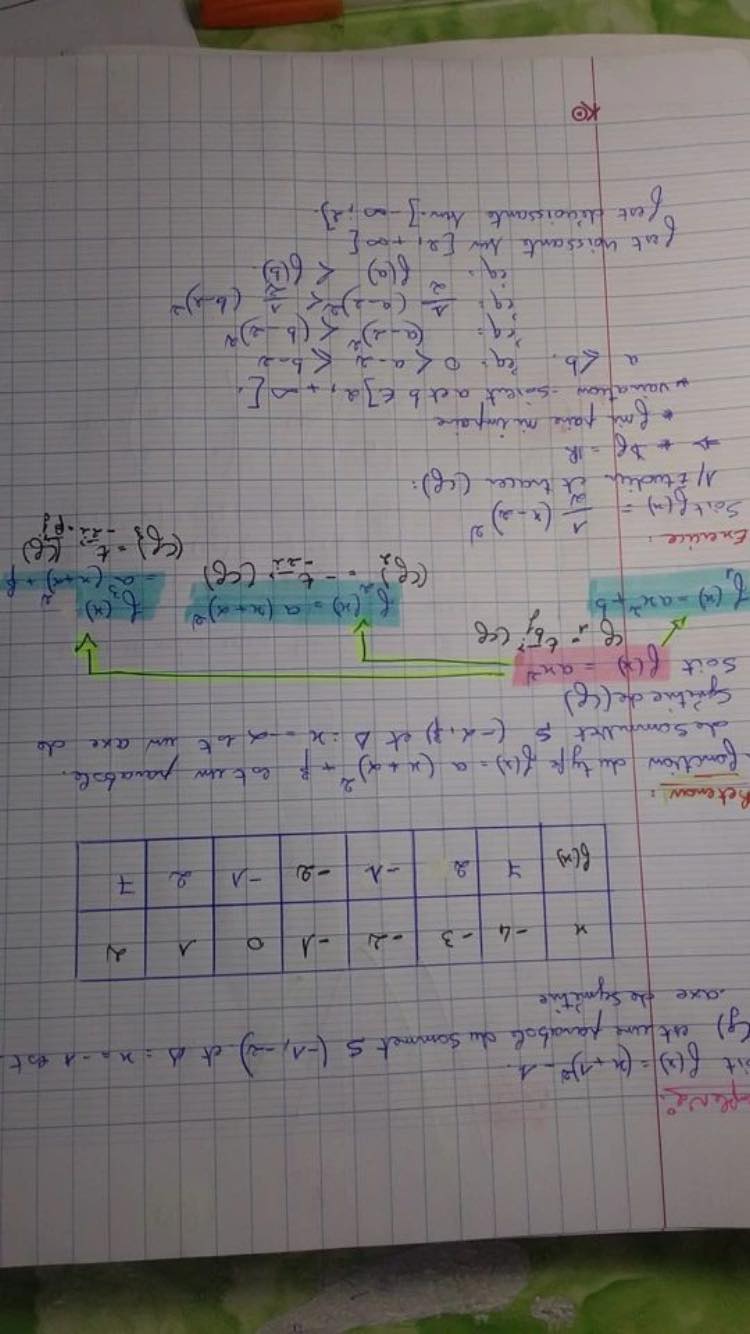 mple N2°
oit f(x) = (x+1)² - 1.
(Cf) est une parabole du sommet S (-1, -2) et Δ : x = -1 est
axe de symétrie
x -4 -3 -2 -1 0 1 2
f(x) 7 2 -1 -2 -1 2 7
Retenons :
fonction du type f(x) = a (x+α)² + β est un parabole.
de sommet S (-α, β) et Δ : x = -α est un axe de
Symétrie de (Cf)
Soit f(x) = ax²
f₁(x) = ax² + b
f₂(x) = a (x+α)² f₃(x)
(Cf)₂ = - t₋αi⃗ (Cf) = a (x+α)² + β
(Cf)₃ = t
Exercice :
Soit f(x) = 1/2 (x-2)²
1/ Etudier et tracer (Cf) :
⇒ * Df = IR
* f ni paire ni impaire
* variation soient a et b ∈ ]2, +∞[.
a ⩽ b. éq = 0 < a-2 ⩽ b-2
éq = (a-2)² < (b-2)²
éq = 1/2 (a-2)² < 1/2 (b-2)²
éq = f(a) < f(b).
f est croissante sur [2, +∞[
f est décroissante sur ]-∞ ; 2].